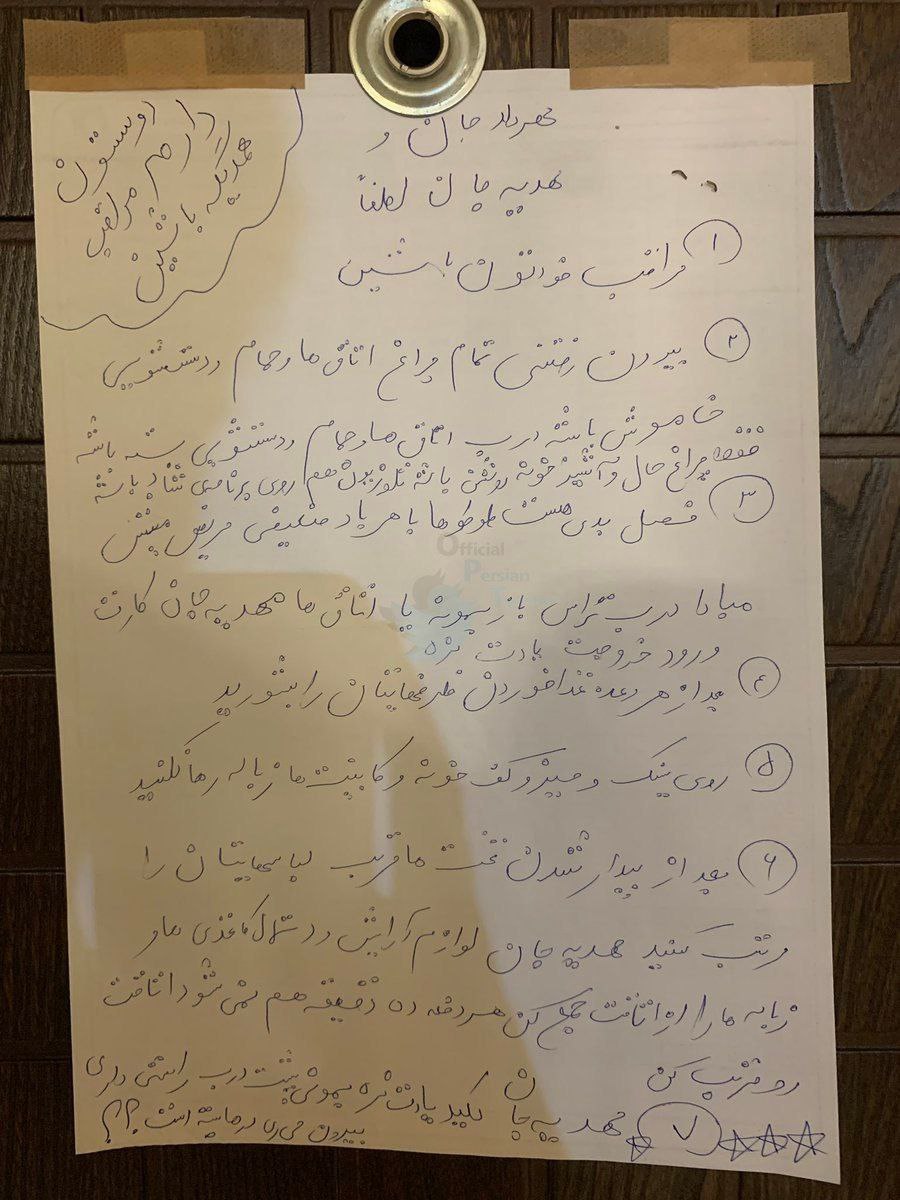 مهرداد جان و
هدیه جان لطفاً
دوستون
دارم مراقب
همدیگه باشین
۱ مراقب خودتون باشین
۲ بیرون رفتنی تمام چراغ اتاق ها و حمام و دستشویی
خاموش باشه درب اتاق ها و حمام و دستشویی بسته باشه
فقط چراغ حال و آشپزخونه روشن باشه تلوزیون هم روی برنامه‌ی شاد باشه
۳ فصل بدی هست طوطی ها با هر باد ضعیفی مریض میشن
مبادا درب تراس باز بمونه یا اتاق ها هدیه جان کارت
ورود خروجت یادت نره
۴ بعد از هر وعده غذا خوردن ظرفهایتان را بشورید
۵ روی سینک و میز و کف خونه و کابینت ها زباله رها نکنید
۶ بعد از بیدار شدن تخت ها مرتب لباسهایتان را
مرتب کنید هدیه جان لوازم آرایش و دستمال کاغذی ها و
زباله ها را از اتاقت جمع کن هر دفعه ده دقیقه هم نمی شود اتاقت
رو مرتب کن
۷ هدیه جان کلید یادت نره بمونی پشت درب راستی داری
بیرون می ری در ما بسته است ؟؟
Official
Persian